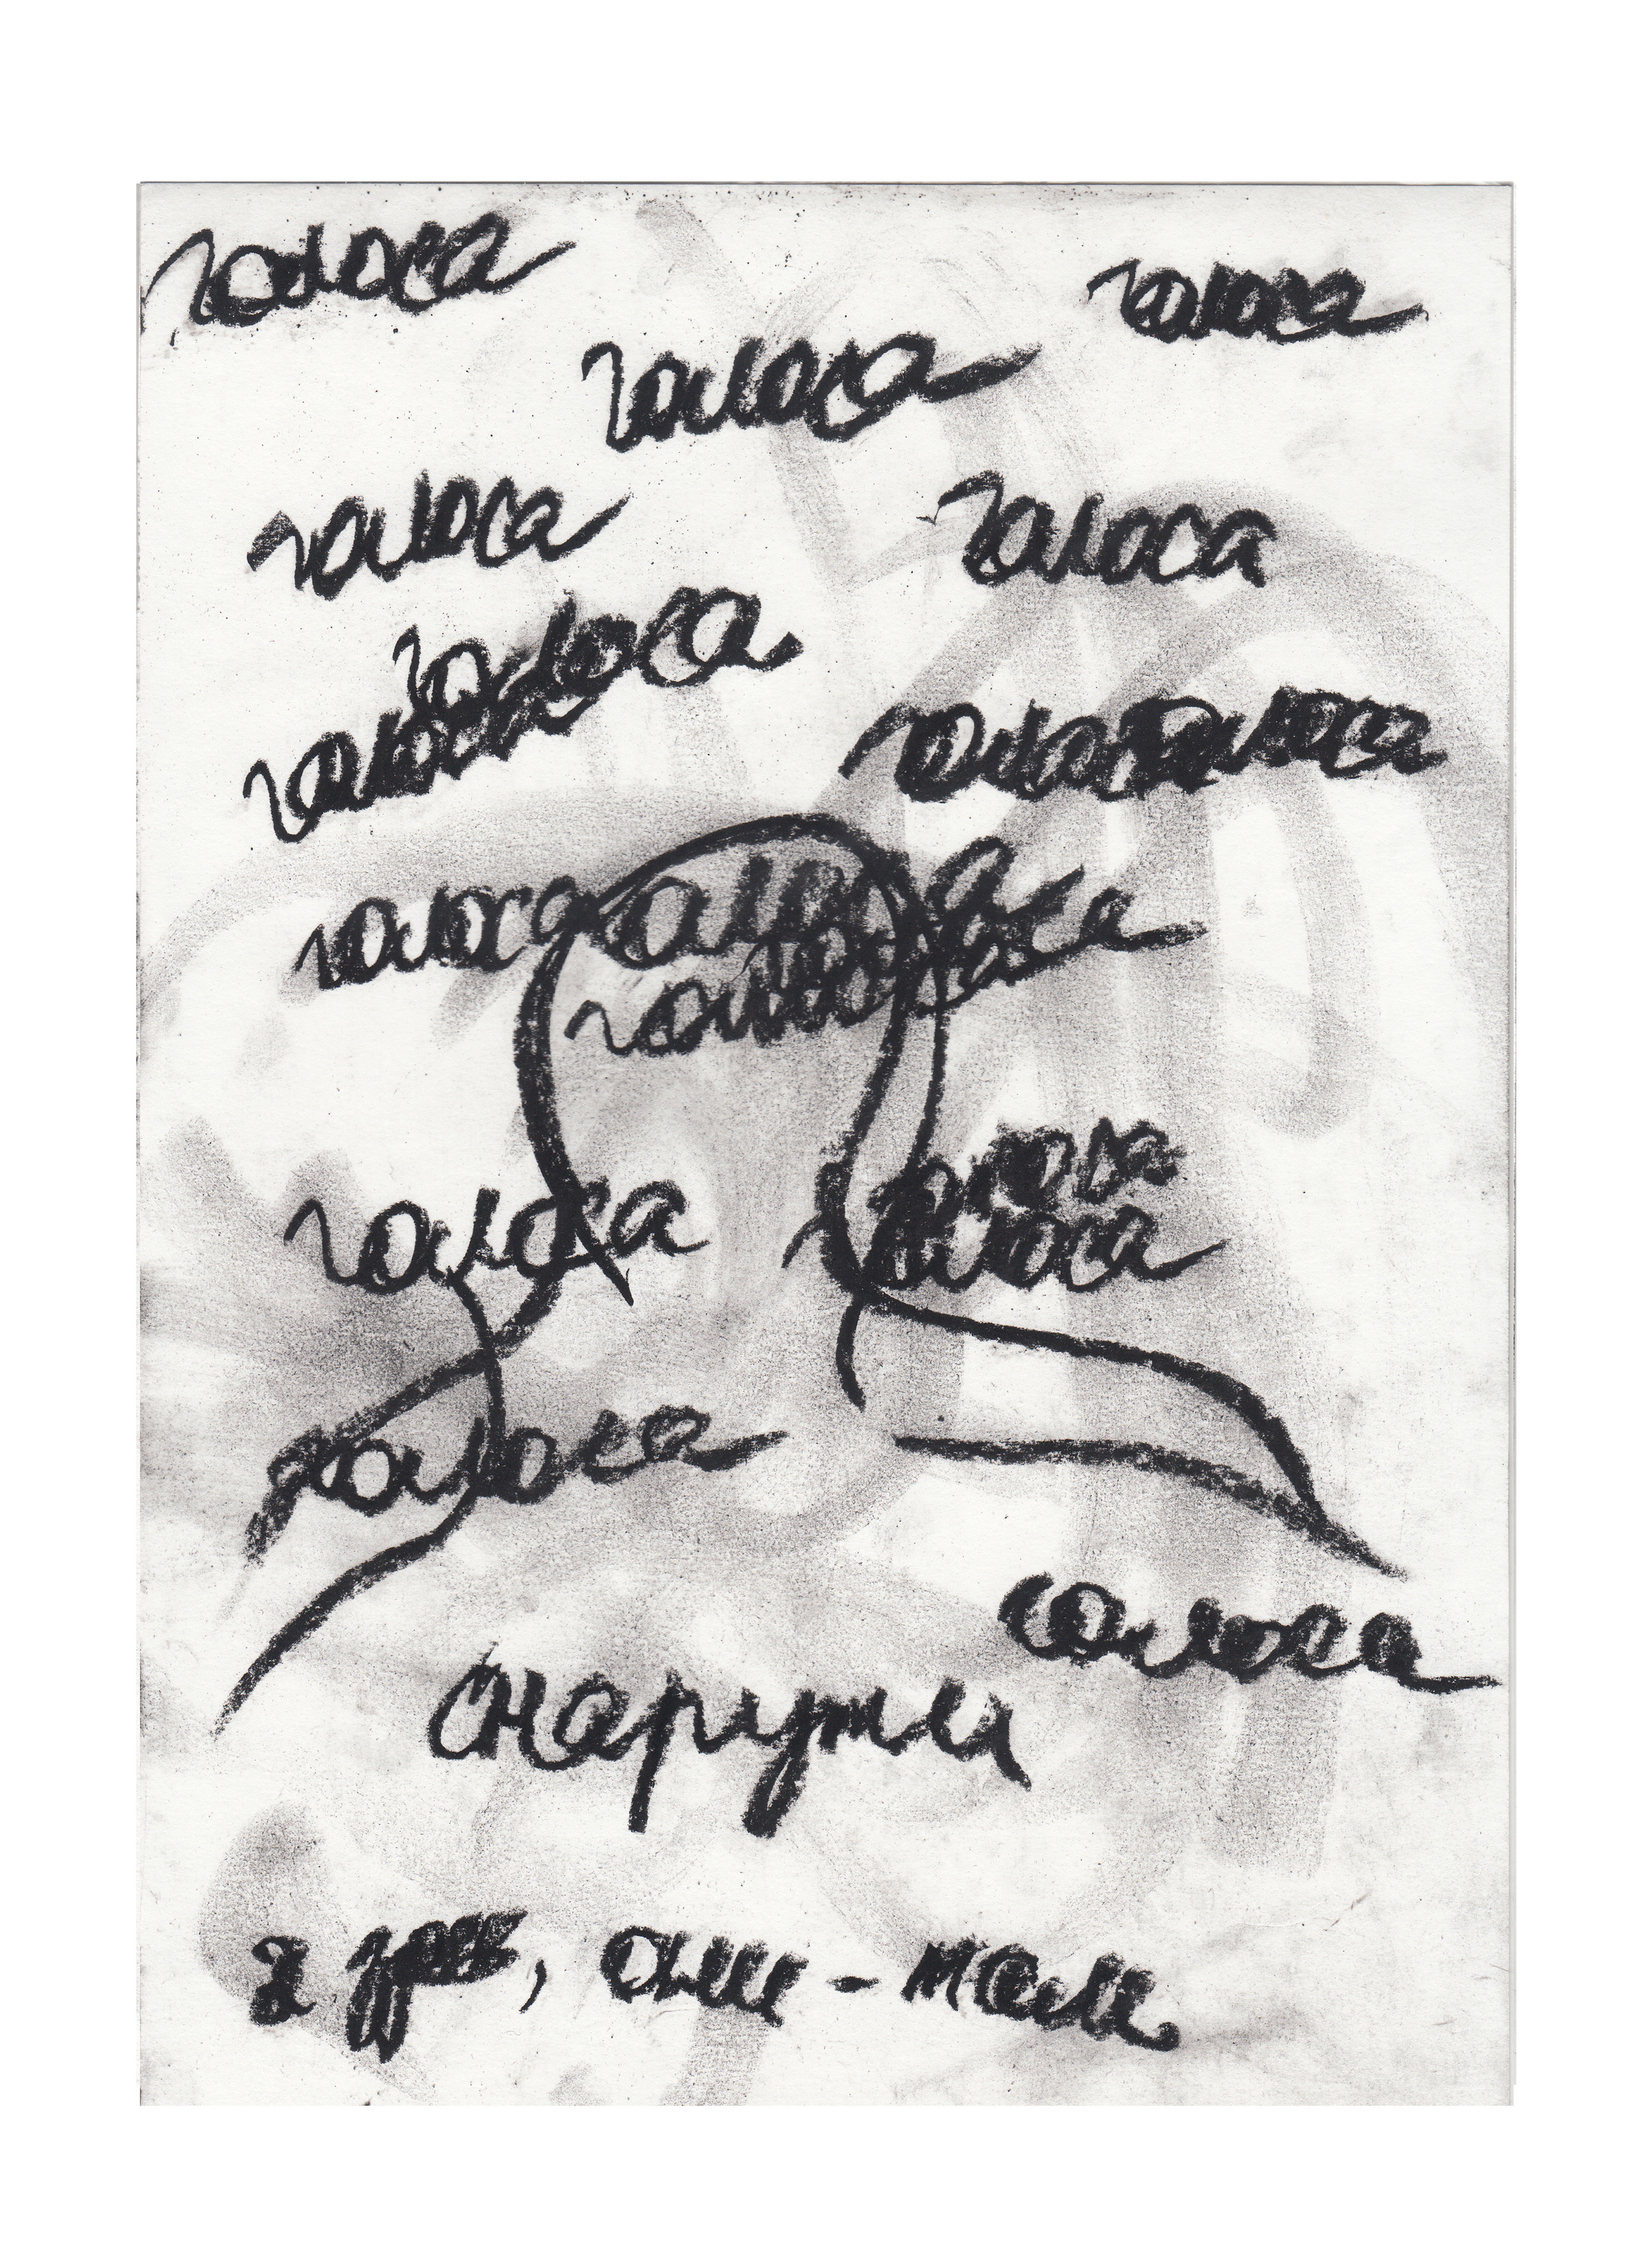 голоса
голоса
голоса
голоса
голоса
голоса
голоса
голоса голоса
голоса голоса
голоса
голоса
голоса
голоса
голоса
голоса
снаружи
я